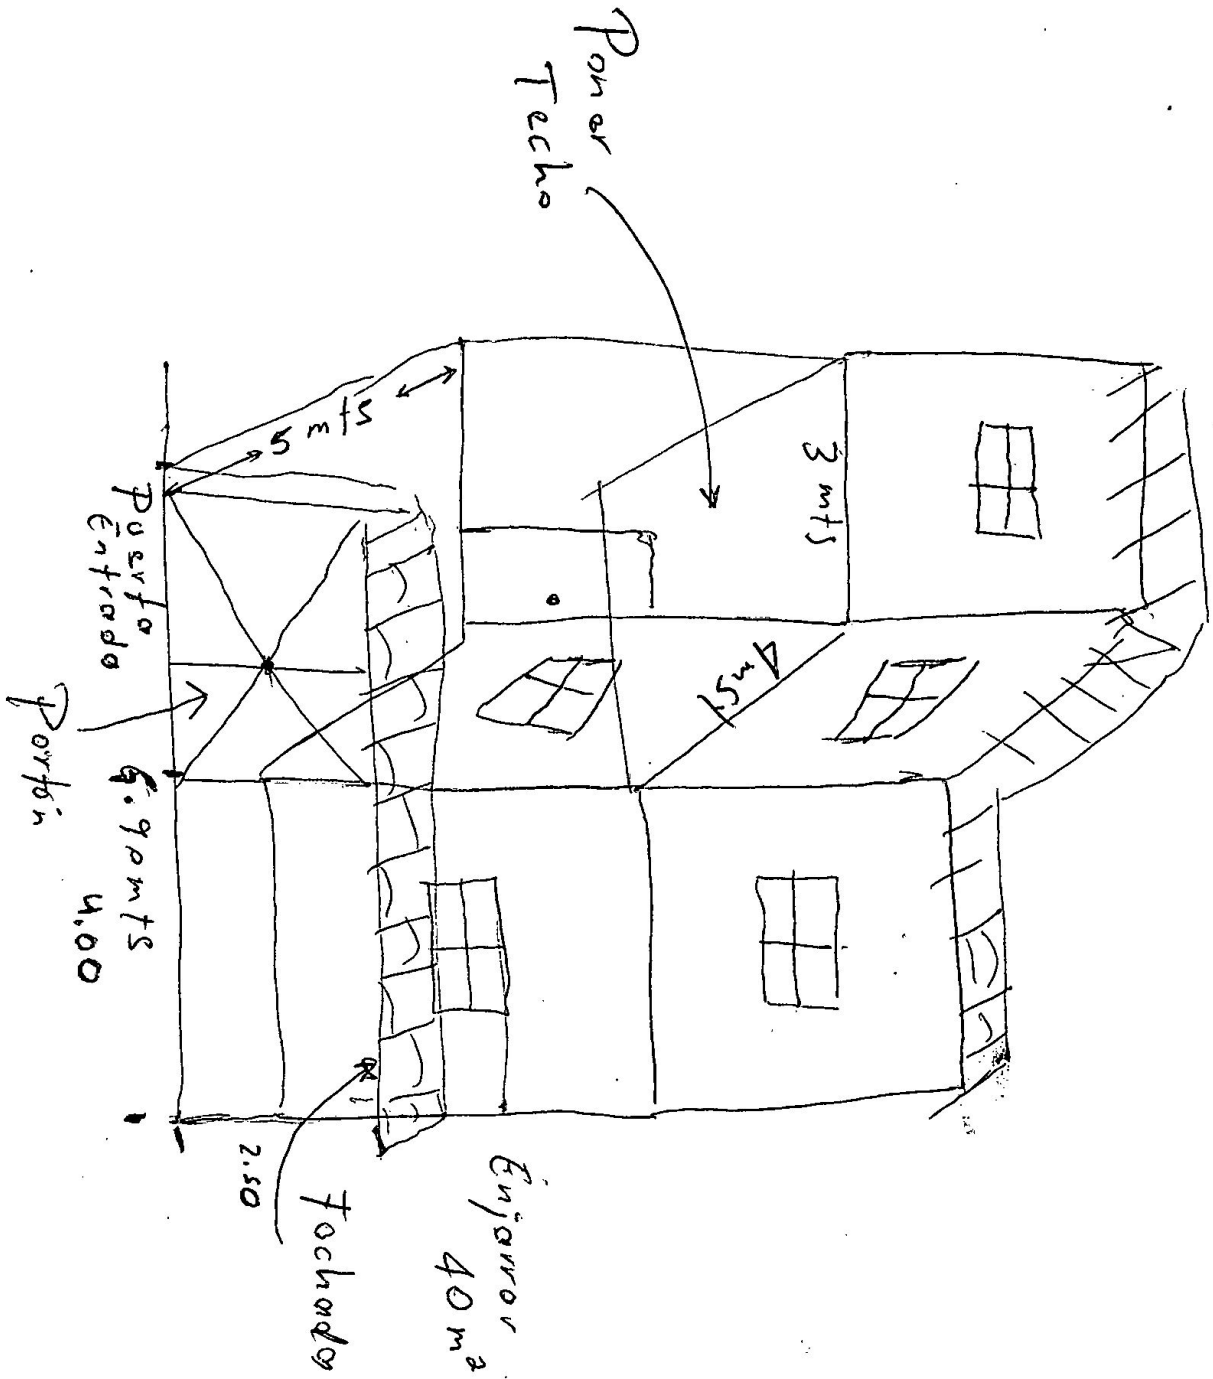 Poner
Techo
3 mts
4 mst
5 mts
Puerta
Entrada
Portón
6.90 mts
4,00
2.50
Fachada
Enjarrar
40 m2